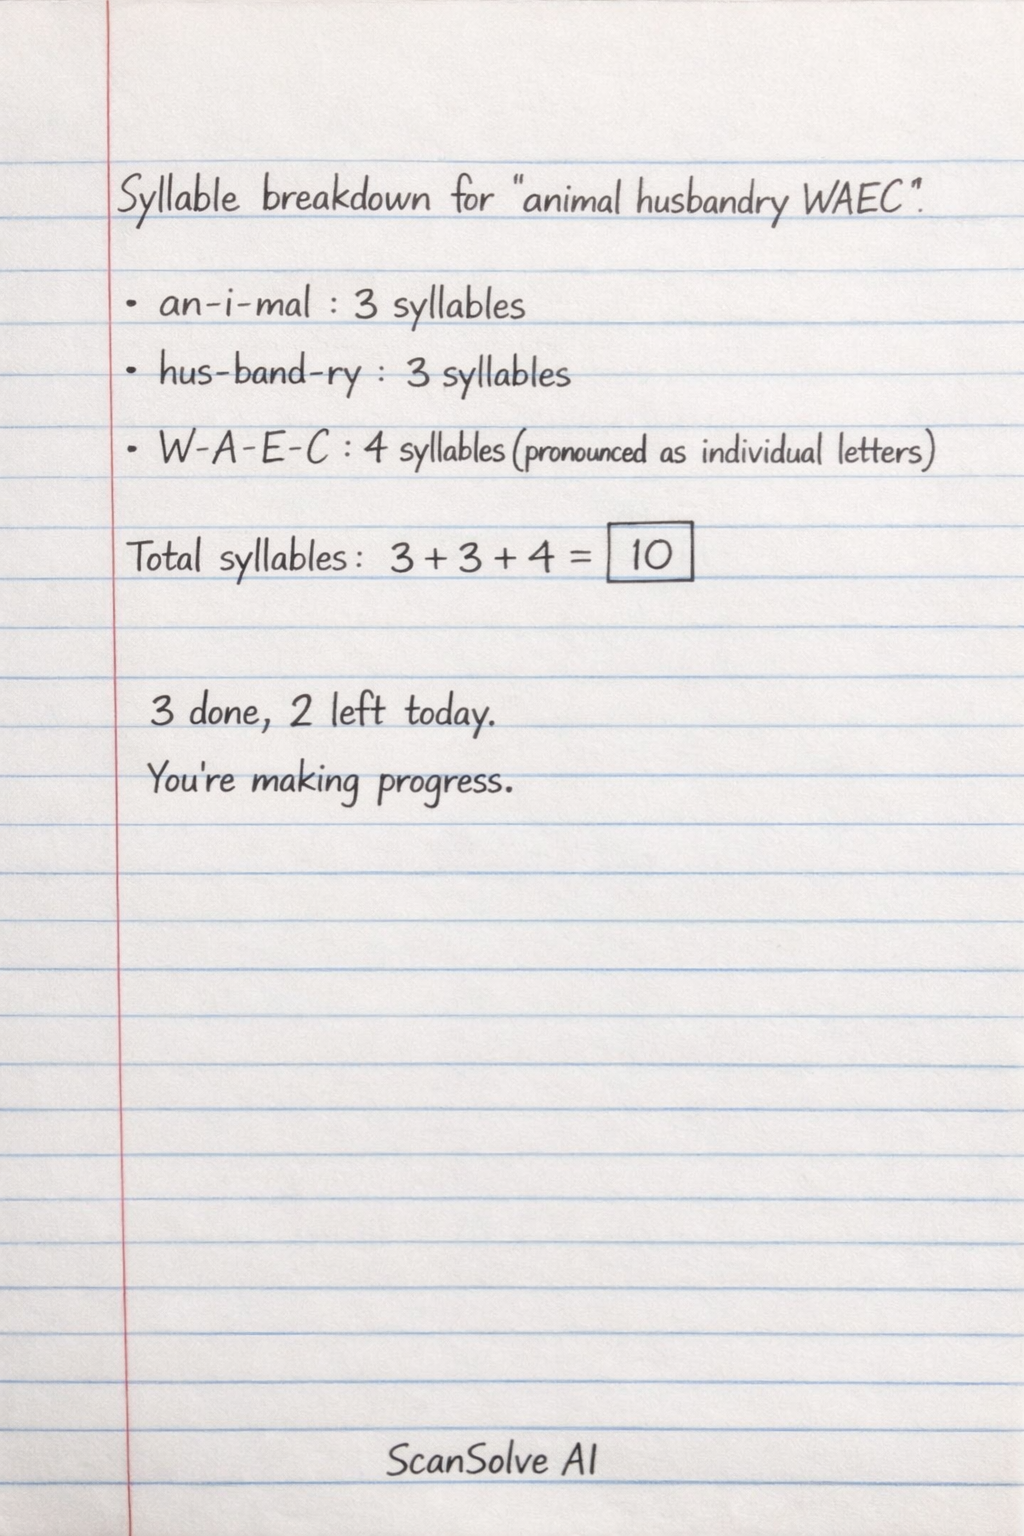 Syllable breakdown for "animal husbandry WAEC":
• an-i-mal : 3 syllables
• hus-band-ry : 3 syllables
• W-A-E-C : 4 syllables (pronounced as individual letters)
Total syllables: 3 + 3 + 4 = 10
3 done, 2 left today.
You're making progress.
ScanSolve AI